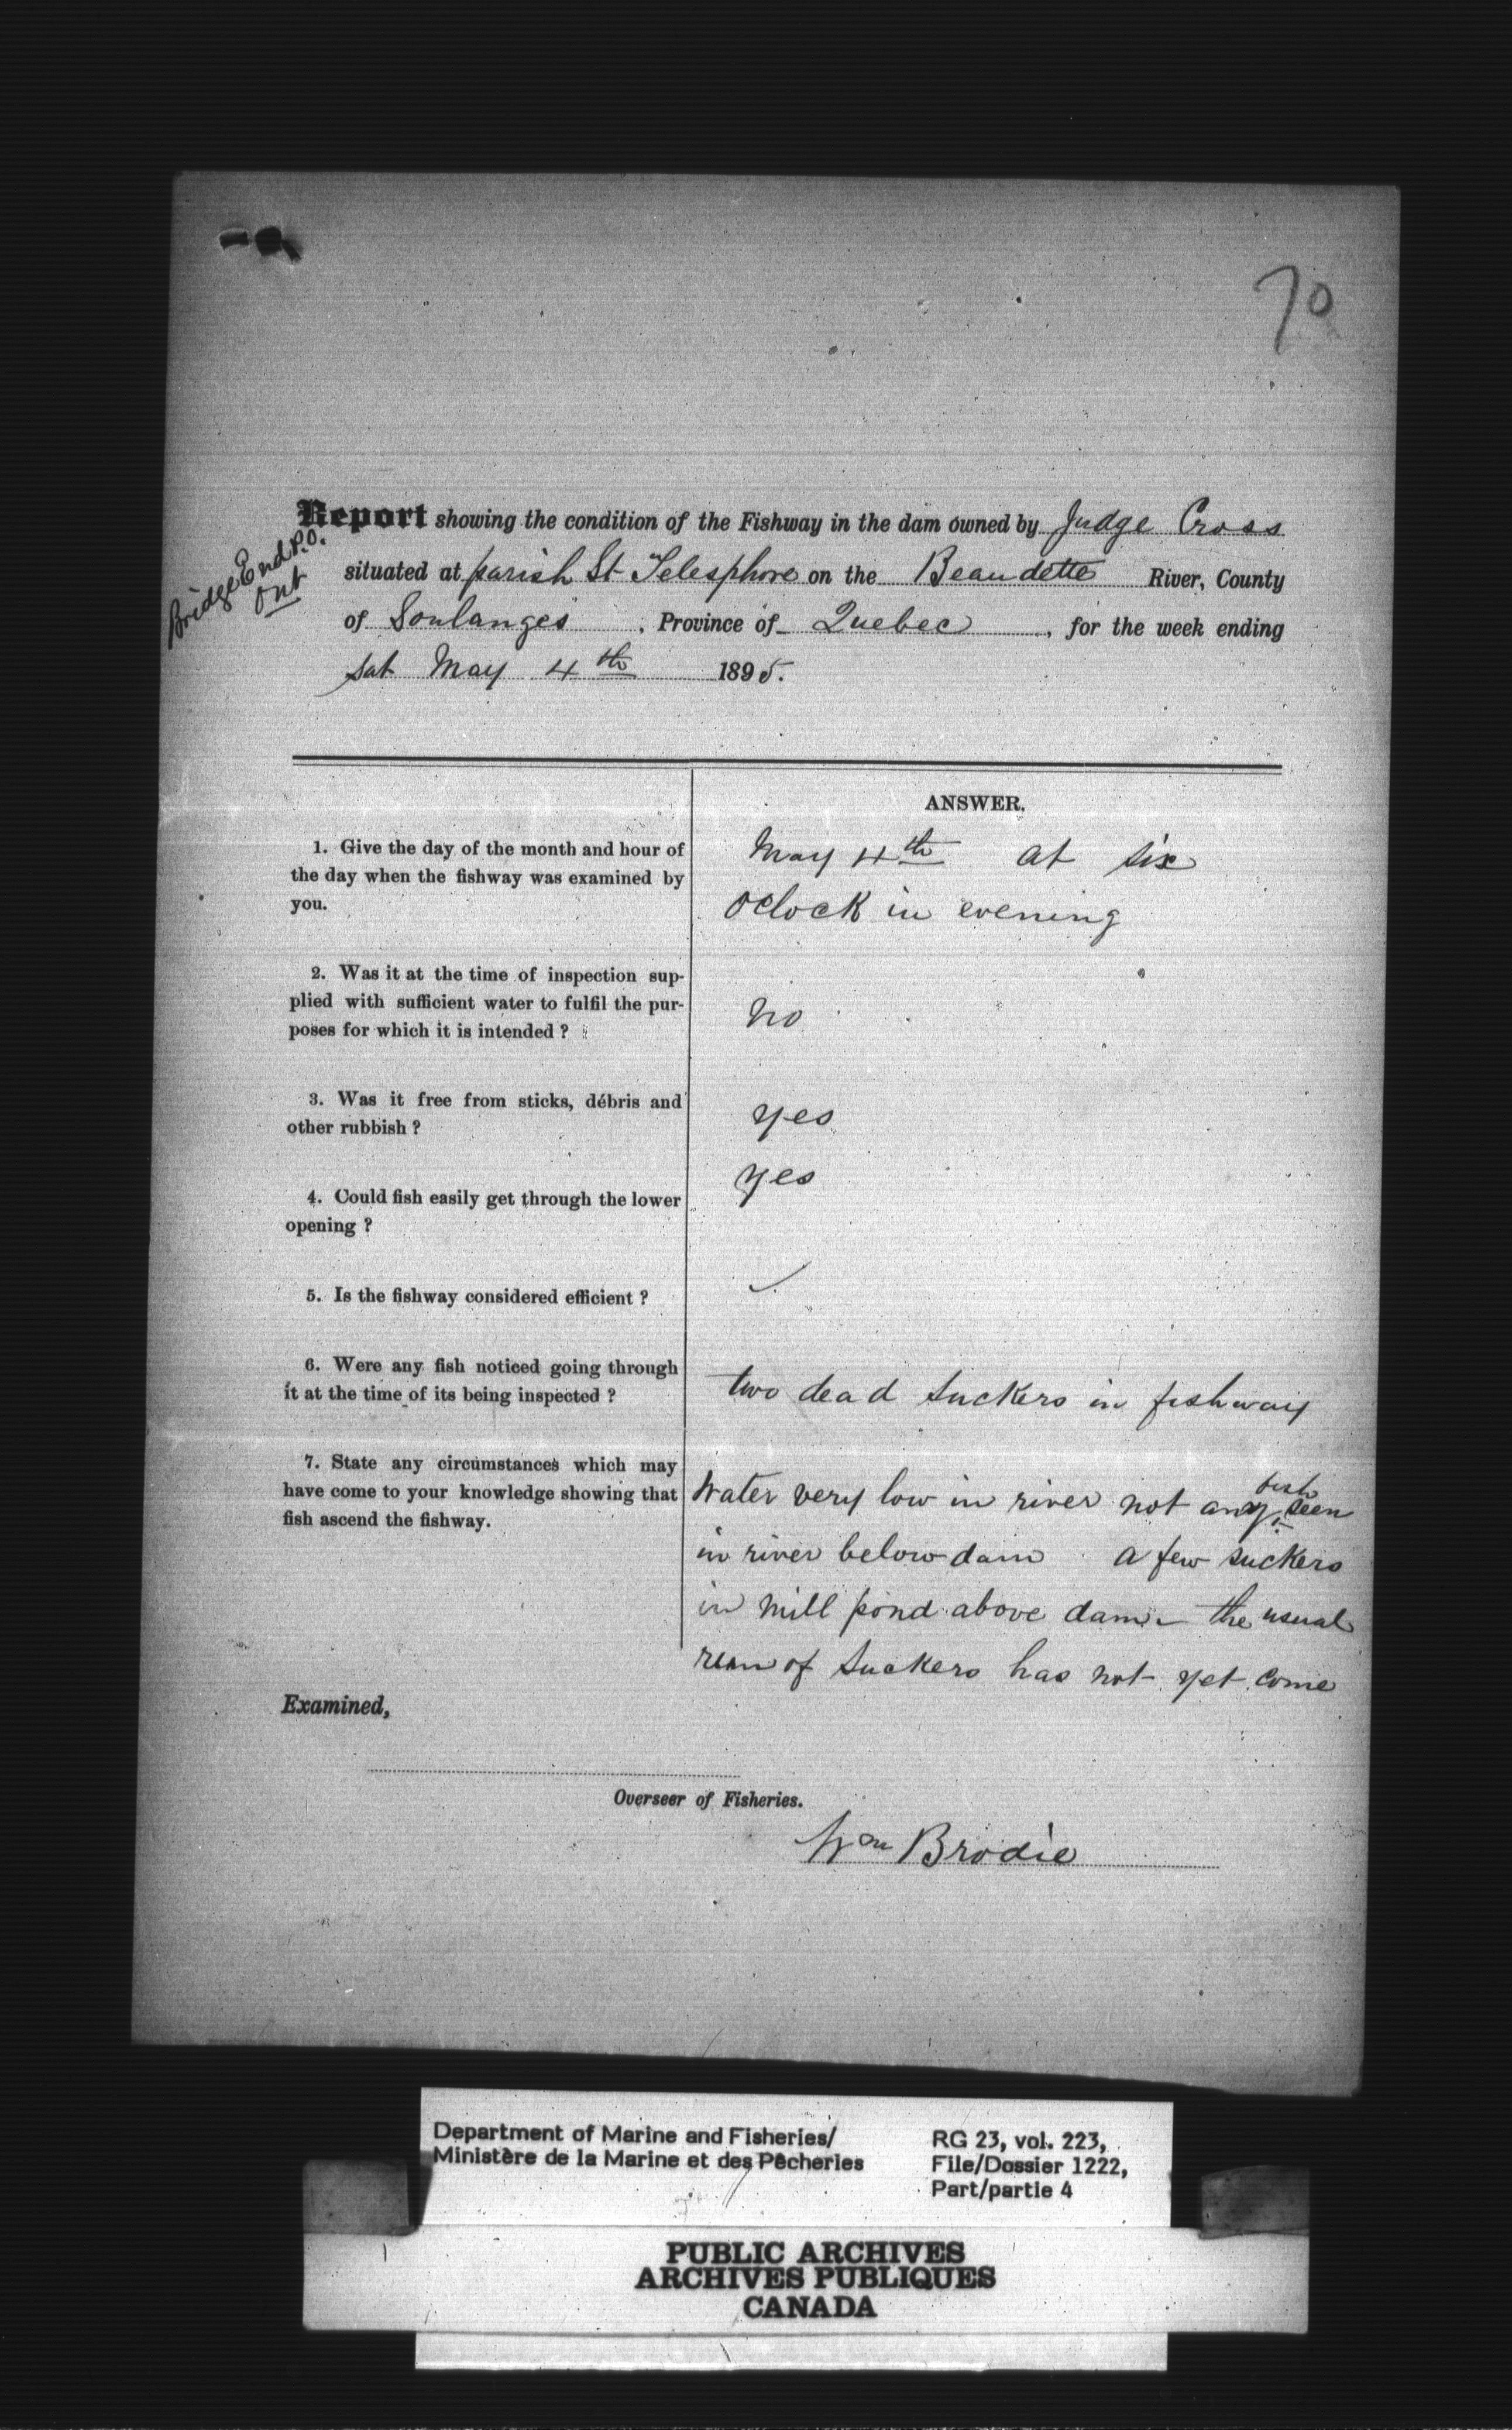 70
Report showing the condition of the Fishway in the dam owned by Judge Cross
situated at parish St Telesphore on the Beaudette River, County
of Soulanges, Province of Quebec, for the week ending
Sat May 4th 1895.
Bridge End P.O.
Ont
ANSWER.
1. Give the day of the month and hour of
the day when the fishway was examined by
you.
May 4th at six
oclock in evening
2. Was it at the time of inspection sup-
plied with sufficient water to fulfil the pur-
poses for which it is intended ?
no
3. Was it free from sticks, débris and
other rubbish ?
yes
4. Could fish easily get through the lower
opening ?
yes
5. Is the fishway considered efficient ?
✓
6. Were any fish noticed going through
it at the time of its being inspected ?
two dead suckers in fishway
7. State any circumstances which may
have come to your knowledge showing that
fish ascend the fishway.
Water very low in river not any fish seen
in river below dam a few suckers
in mill pond above dam – the usual
run of suckers has not yet come
Examined,
Overseer of Fisheries.
Wm Brodie
Department of Marine and Fisheries/
Ministère de la Marine et des Pêcheries
RG 23, vol. 223,
File/Dossier 1222,
Part/partie 4
PUBLIC ARCHIVES
ARCHIVES PUBLIQUES
CANADA